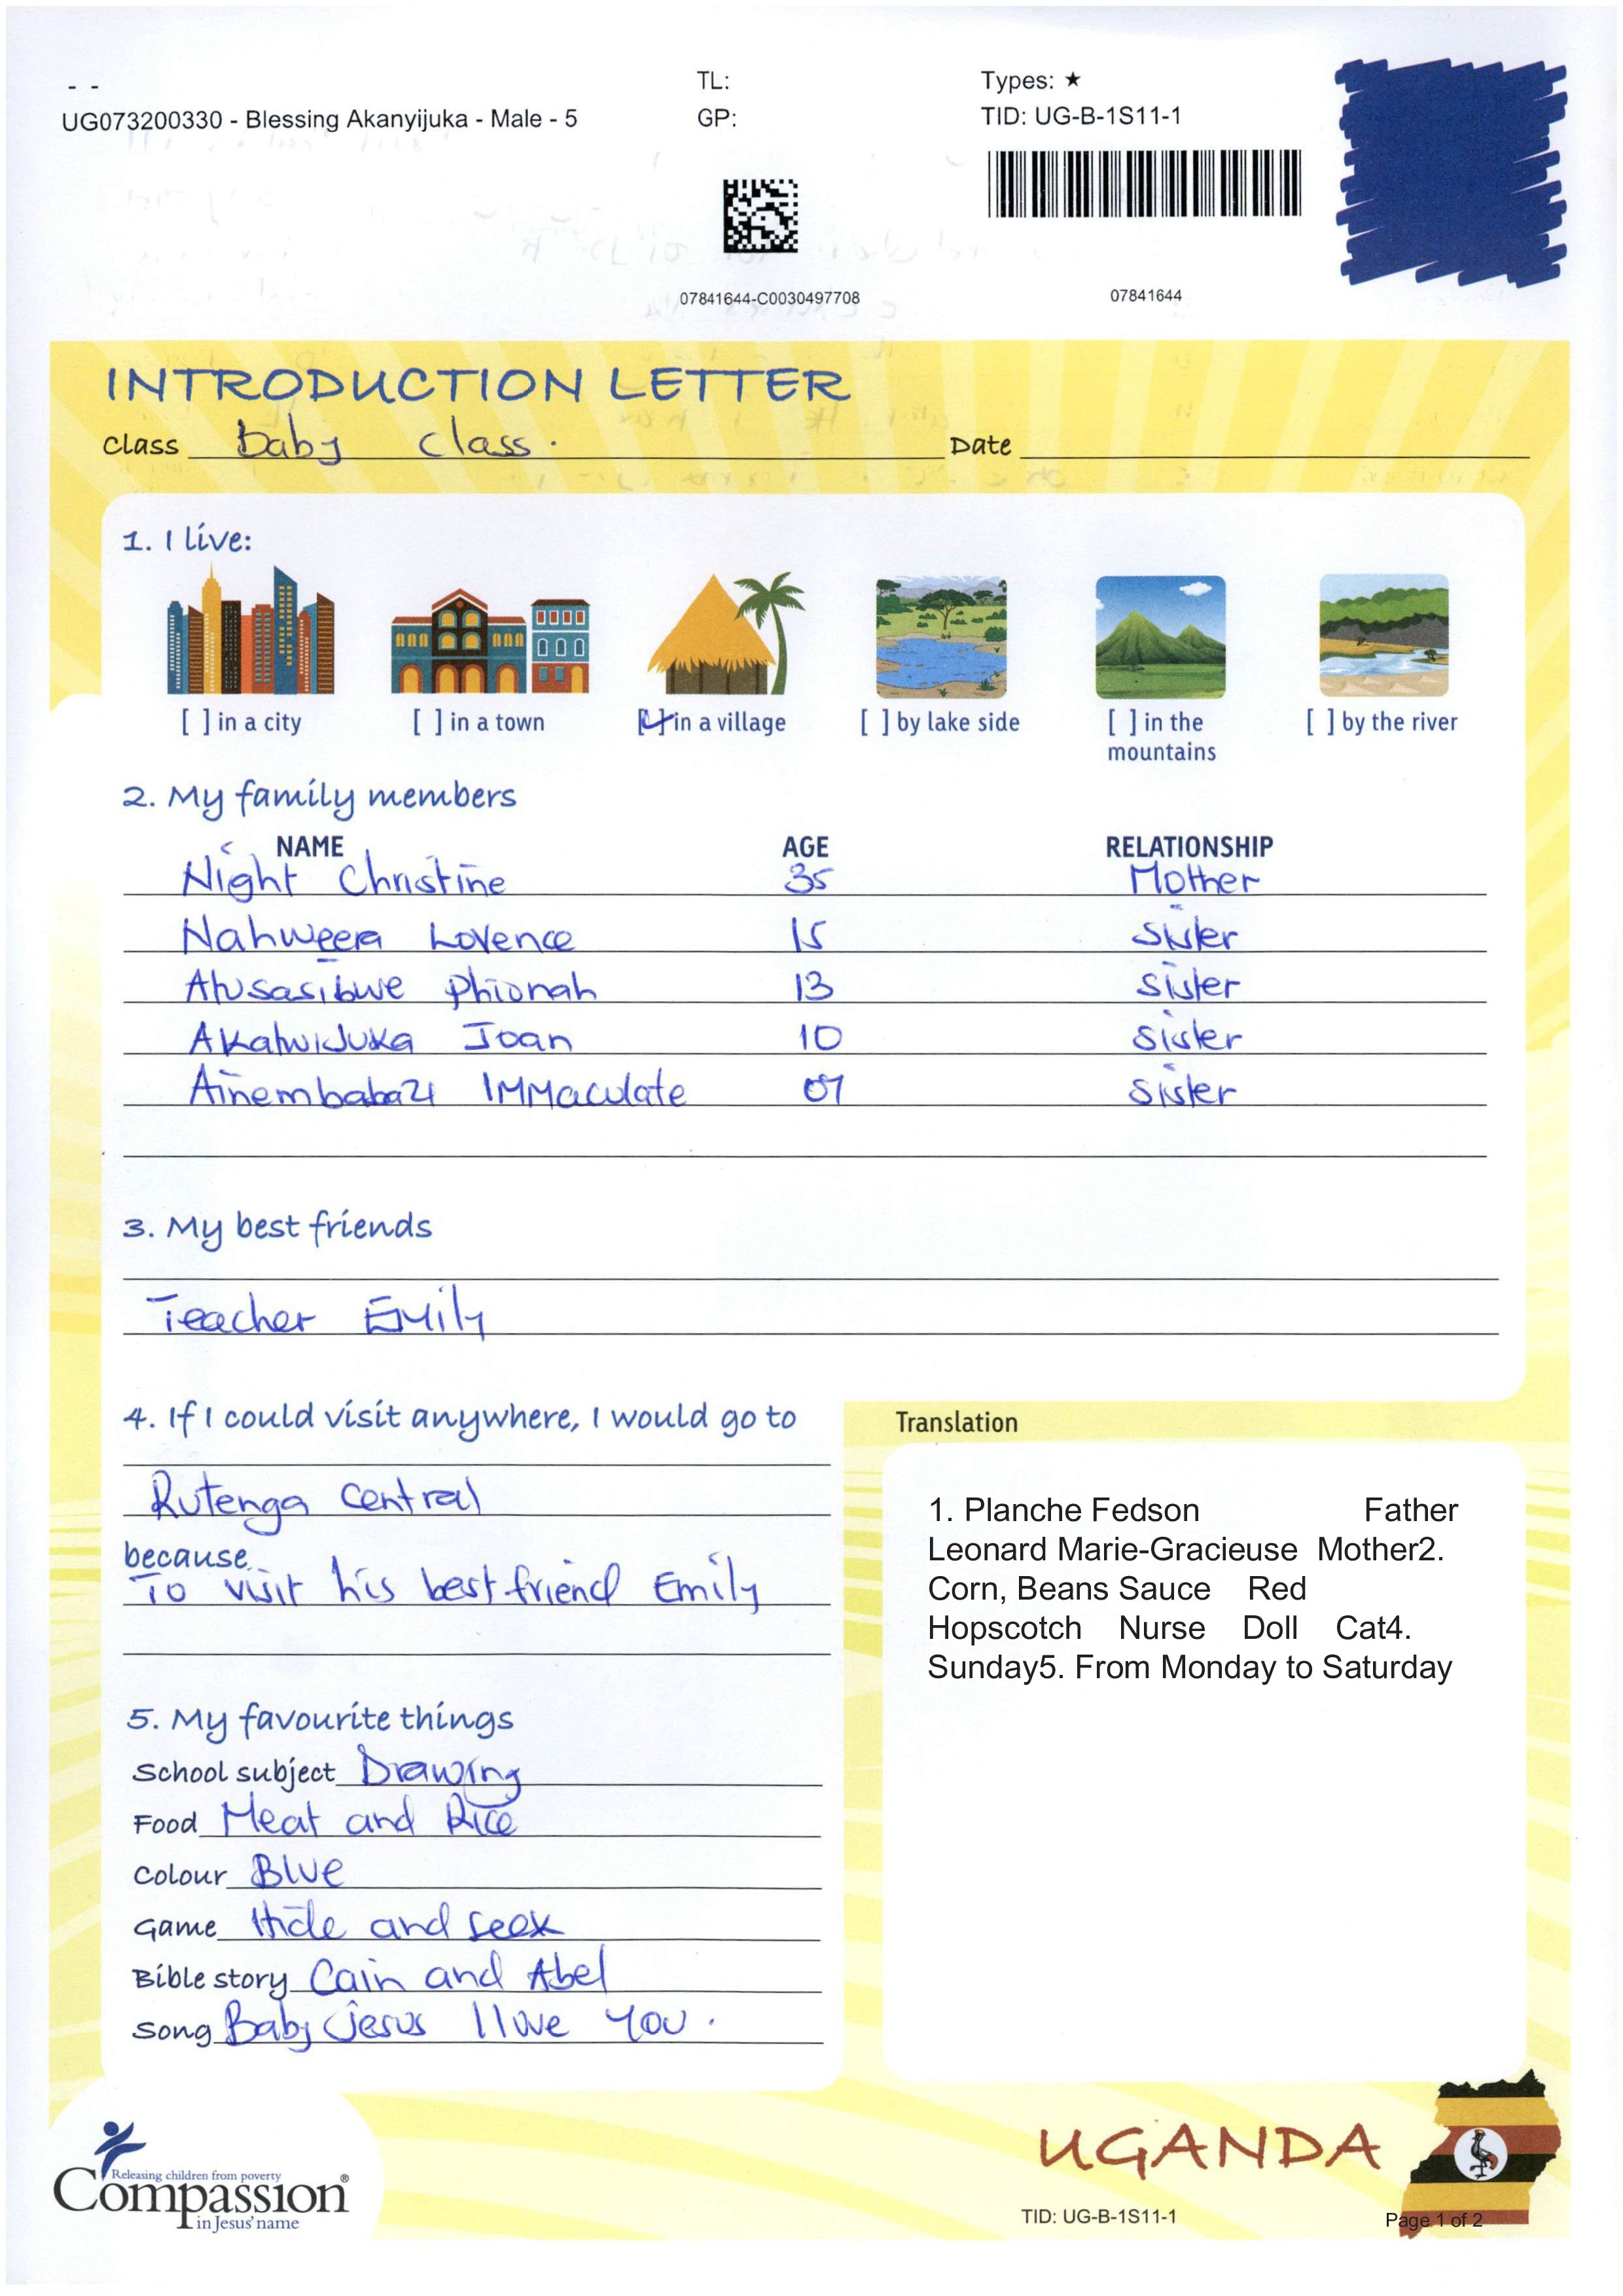 - -
UG073200330 - Blessing Akanyijuka - Male - 5
TL:
GP:
Types: ★
TID: UG-B-1S11-1
07841644-C0030497708
07841644
INTRODUCTION LETTER
Class Baby class.
Date
1. I live:
[ ] in a city
[ ] in a town
[✓] in a village
[ ] by lake side
[ ] in the
mountains
[ ] by the river
2. My family members
NAME AGE RELATIONSHIP
Night Christine 35 Mother
Nahweera Lovence 15 Sister
Atusasibwe Phionah 13 Sister
Akatwijuka Joan 10 Sister
Ainembabazi IMMaculate 07 Sister
3. My best friends
Teacher Emily
4. If I could visit anywhere, I would go to
Rutenga Central
because
To visit his best friend Emily
5. My favourite things
School subject Drawing
Food Meat and Rice
Colour Blue
Game Hide and seek
Bible story Cain and Abel
Song Baby Jesus I love you.
Translation
1. Planche Fedson Father
Leonard Marie-Gracieuse Mother2.
Corn, Beans Sauce Red
Hopscotch Nurse Doll Cat4.
Sunday5. From Monday to Saturday
Releasing children from poverty
Compassion®
in Jesus' name
UGANDA
TID: UG-B-1S11-1
Page 1 of 2